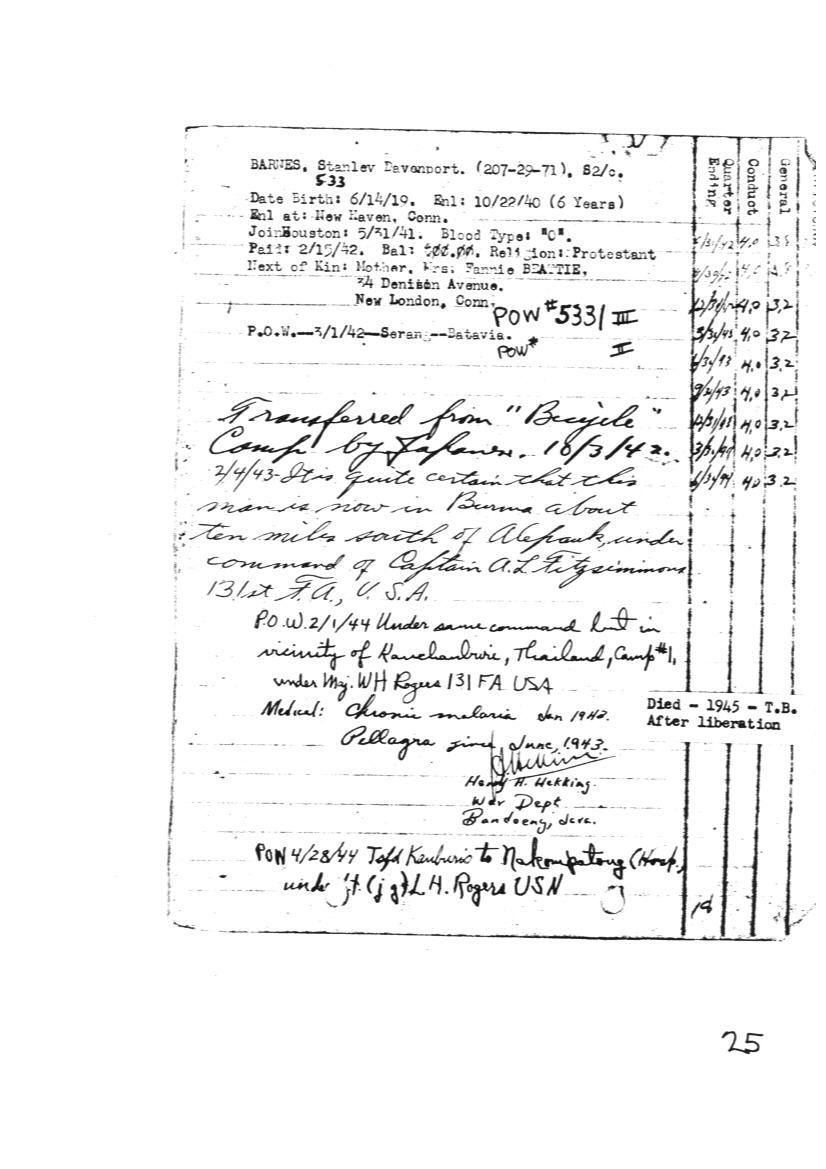 BARNES, Stanley Davenport. (207-29-71), S2/c.
533
Date Birth: 6/14/19. Enl: 10/22/40 (6 Years)
Enl at: New Haven, Conn.
JoinHouston: 5/31/41. Blood Type: "O".
Paid: 2/15/42. Bal: $00.00. Religion: Protestant
Next of Kin: Mother, Mrs: Fannie BEATTIE,
74 Denison Avenue.
New London, Conn.
POW #5331 III
P.O.W.--3/1/42--Serang--Batavia.
POW# II
Transferred from "Bicycle"
Camp by Japanese. 10/3/42.
2/4/43- It is quite certain that this
man is now in Burma about
ten miles south of Alepauk, under
command of Captain A.L Fitzsimmons
131st F.A., U.S.A.
P.O.W. 2/1/44 Under same command but in
vicinity of Kanchanburi, Thailand, Camp #1,
under Maj. WH Rogers 131 FA USA
Medical: Chronic malaria Jan 1942.
Pellagra since June, 1943.
Henry H. Hekking.
War Dept
Bandoeng, Java.
POW 4/28/44 Tsfd Kanburi to Nakompatong (Hosp.)
under Lt. (jg) L H. Rogers USN
Quarter Ending Conduct General
5/31/42 4.0 3.8
4.0
12/31/42 4.0 3.2
3/31/43 4.0 3.2
6/30/43 4.0 3.2
9/2/43 4.0 3.2
12/31/43 4.0 3.2
3/31/44 4.0 3.2
6/30/44 4.0 3.2
Died - 1945 - T.B.
After liberation
18
25